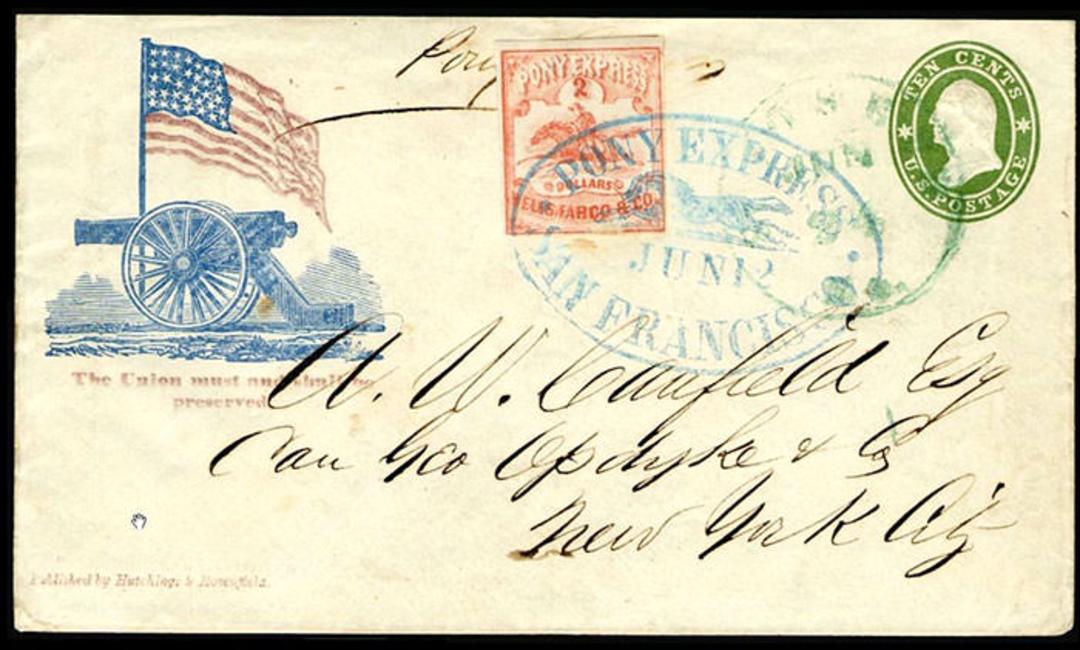 Pony
PONY EXPRESS
2
DOLLARS
WELLS FARGO & CO.
PONY EXPRESS
JUN 12
SAN FRANCISCO
TEN CENTS
U.S. POSTAGE
The Union must and shall be
preserved.
A. W. Canfield Esq
Care Geo Opdyke & Co
New York City
Published by Hutchings & Rosenfield.